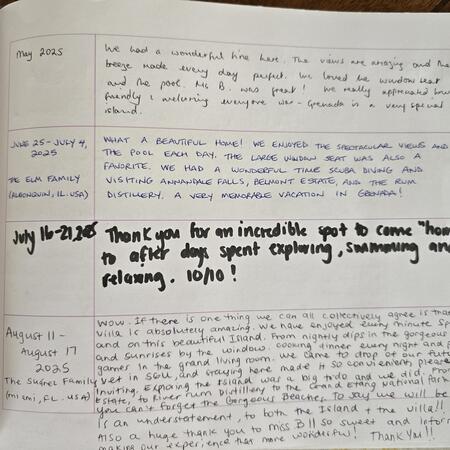 May 2025
We had a wonderful time here. The views are amazing and the
breeze made every day perfect. We loved the window seat
and the pool. Ms B. was great! We really appreciated how
friendly & welcoming everyone was - Grenada is a very special
island.
JUNE 25 - JULY 4,
2025
THE ELM FAMILY
(ALGONQUIN, IL. USA)
WHAT A BEAUTIFUL HOME! WE ENJOYED THE SPECTACULAR VIEWS AND
THE POOL EACH DAY. THE LARGE WINDOW SEAT WAS ALSO A
FAVORITE. WE HAD A WONDERFUL TIME SCUBA DIVING AND
VISITING ANNANDALE FALLS, BELMONT ESTATE, AND THE RUM
DISTILLERY. A VERY MEMORABLE VACATION IN GRENADA!
July 16-21, 2025
Thank you for an incredible spot to come "hom
to after days spent exploring, swimming an
relaxing. 10/10!
August 11 -
August 17
2025
The Family
(miami, FL. USA)
WOW. If there is one thing we can all collectively agree is tha
villa is absolutely amazing. We have enjoyed every minute sp
and on this beautiful Island. From nightly dips in the gorgeous
and sunrises by the window. Cooking dinner every night and p
games in the grand living room. We came to drop of our
vet in SGU and staying here made it so convenient, please
inviting. Exploring the Island was a big todo and we did. From
Estate, to River rum Distillery to the Grand Etang National Park
you can't forget the Gorgeous Beaches. To say we will be
is an understatement, to both the Island + the villa!!
Also a huge thank you to miss B!! So sweet and infor
making our experience that more wonderful! Thank You!!